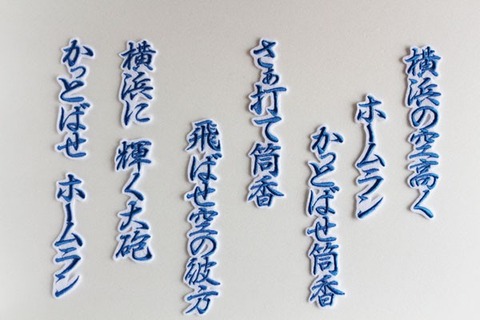 横浜の空高く
ホームラン
かっとばせ筒香
さぁ打て筒香
飛ばせ空の彼方
横浜に 輝く大砲
かっとばせ ホームラン